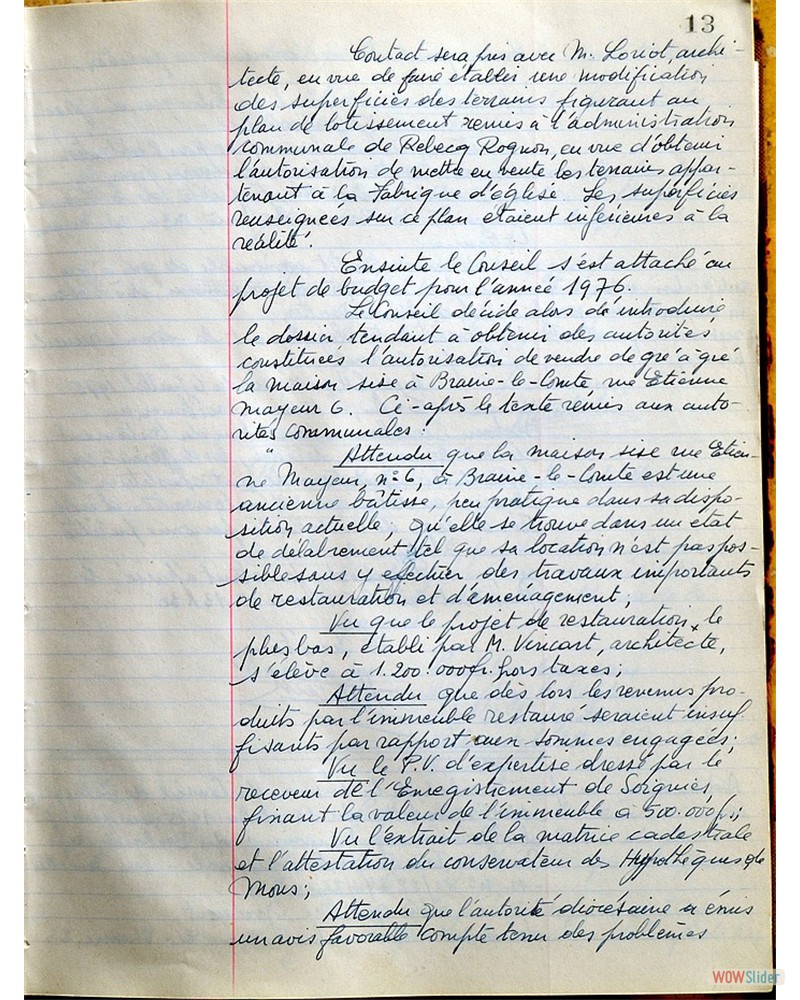 13
Contact sera pris avec M. Loriot, archi-
tecte, en vue de faire établir une modification
des superficies des terrains figurant au
plan de lotissement remis à l'administration
communale de Rebecq Rognon, en vue d'obtenir
l'autorisation de mettre en vente les terrains appar-
tenant à la Fabrique d'église. Les superficies
renseignées sur ce plan étaient inférieures à la
réalité.
Ensuite le Conseil s'est attaché au
projet de budget pour l'année 1976.
Le Conseil décide alors de introduire
le dossier tendant à obtenir des autorités
constituées l'autorisation de vendre de gré à gré
la maison sise à Braine-le-Comte rue Etienne
Mayeur 6. Ci-après le texte remis aux auto-
rités communales :
" Attendu que la maison sise rue Etien-
ne Mayeur, n° 6, à Braine-le-Comte est une
ancienne bâtisse, peu pratique dans sa dispo-
sition actuelle ; qu'elle se trouve dans un état
de délabrement tel que sa location n'est pas pos-
sible sans y effectuer des travaux importants
de restauration et d'aménagement ;
Vu que le projet de restauration, le
plus bas, établi par M. Vincart, architecte,
s'élève à 1.200.000 fr. hors taxes ;
Attendu que dès lors les revenus pro-
duits par l'immeuble restauré seraient insuf-
fisants par rapport aux sommes engagées ;
Vu le P.V. d'expertise dressé par le
receveur de l'Enregistrement de Soignies,
fixant la valeur de l'immeuble à 500.000 fr ;
Vu l'extrait de la matrice cadastrale
et l'attestation du conservateur des Hypothèques de
Mons ;
Attendu que l'autorité diocésaine a émis
un avis favorable compte tenu des problèmes
WOWSlider